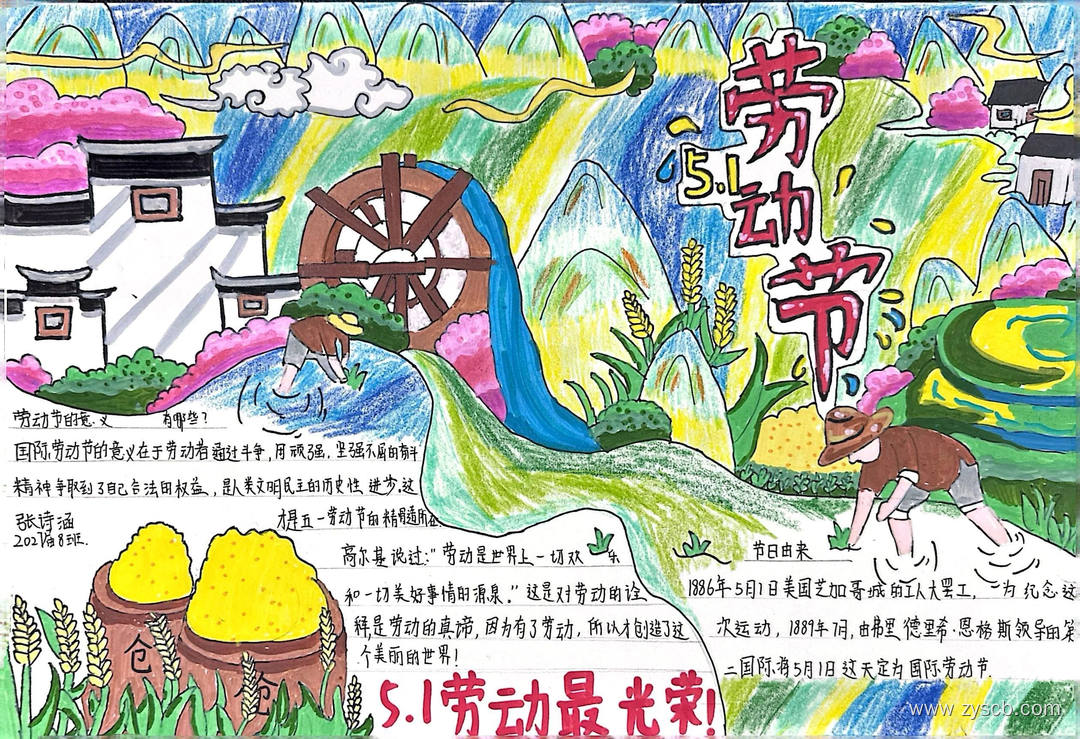 5.1
劳动节
劳动节的意义 有哪些?
国际劳动节的意义在于劳动者通过斗争,用顽强、坚强不屈的奋斗
精神争取到了自己合法的权益,是人类文明民主的历史性进步.这
才是五一劳动节的精髓所在
张诗涵
2021届8班.
高尔基说过:"劳动是世界上一切欢乐
和一切美好事情的源泉。"这是对劳动的诠
释是劳动的真谛,因为有了劳动,所以才创造了这
个美丽的世界!
节日由来
1886年5月1日美国芝加哥城的工人大罢工,为纪念这
次运动,1889年7月,由弗里德里希·恩格斯领导的第
二国际,将5月1日这天定为国际劳动节.
仓
仓
5.1劳动最光荣!
www.zyscb.com